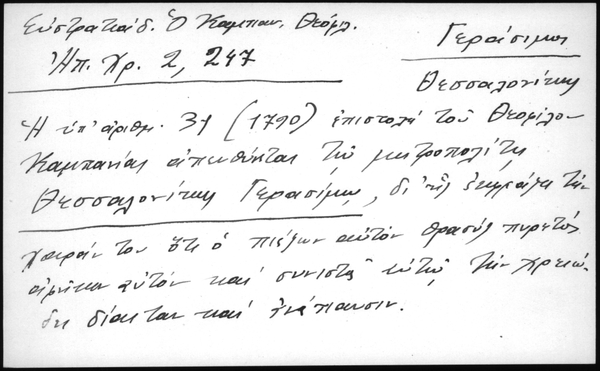 Εὐστρατιάδ. Ὁ Καμπαν. Θεόφιλ.
Ἠπ. Χρ. 2, 247
Γεράσιμος
Θεσσαλονίκης
Ἡ ὑπ' ἀριθμ. 31 (1790) ἐπιστολὴ τοῦ Θεοφίλου
Καμπανίας ἀπευθύνεται τῷ μητροπολίτῃ
Θεσσαλονίκης Γερασίμῳ, δι' ἧς ἐκφράζει τὴν
χαράν του ὅτι ὁ πιέζων αὐτὸν θρασὺς πυρετὸς
ἀφῆκεν αὐτὸν καὶ συνιστᾷ αὐτῷ τὴν χρειώ-
δη δίαιταν καὶ ἀνάπαυσιν.